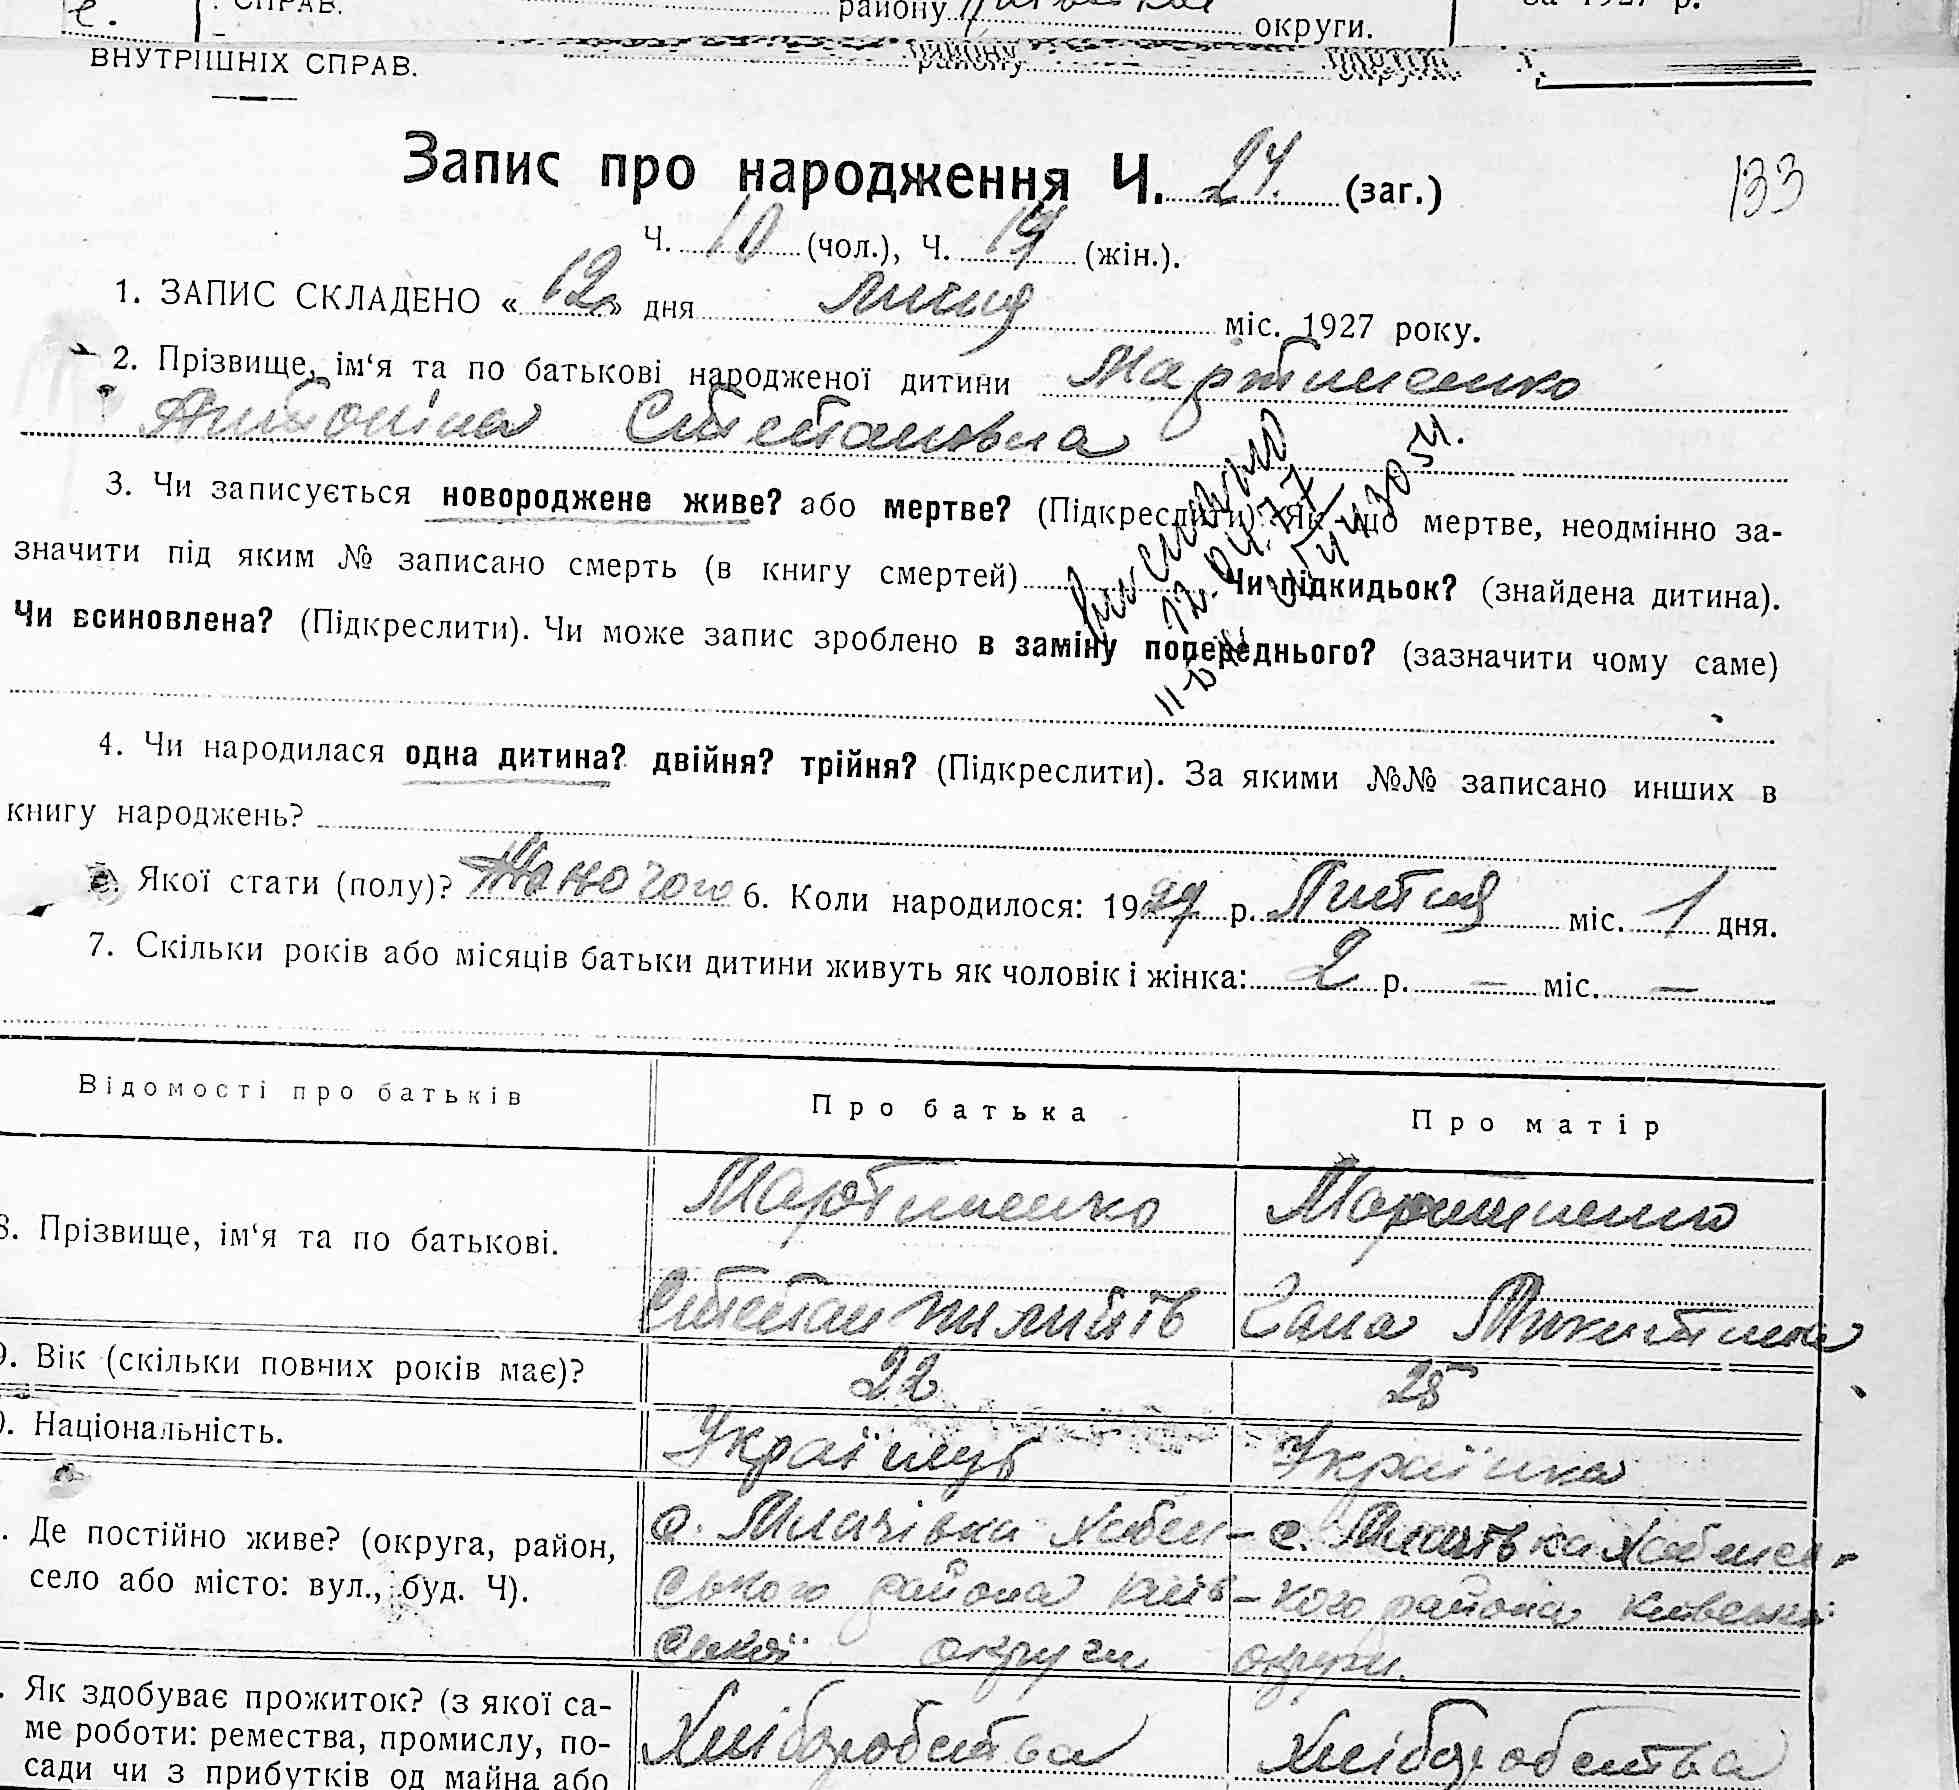 СПРАВ.
району округи.
за 1927 р.
ВНУТРІШНІХ СПРАВ.
району
Запис про народження Ч. 24. (заг.)
133
Ч. 10 (чол.), Ч. 14 (жін.).
1. ЗАПИС СКЛАДЕНО « 12 » дня липня міс. 1927 року.
2. Прізвище, ім‘я та по батькові народженої дитини Мартиненко
Антоніна Степановна
3. Чи записується новороджене живе? або мертве? (Підкреслити). Як що мертве, неодмінно за-
значити під яким № записано смерть (в книгу смертей) Чи підкидьок? (знайдена дитина).
Чи всиновлена? (Підкреслити). Чи може запис зроблено в заміну попереднього? (зазначити чому саме)
4. Чи народилася одна дитина? двійня? трійня? (Підкреслити). За якими №№ записано инших в
книгу народжень?
Якої стати (полу)? Жиночого 6. Коли народилося: 1927 р. Липня міс. 1 дня.
7. Скільки років або місяців батьки дитини живуть як чоловік і жінка: 2 р. — міс. —
Відомості про батьків Про батька Про матір
8. Прізвище, ім‘я та по батькові. Мартиненко Мартиненко
Степан Пилипів Гана Микитина
9. Вік (скільки повних років має)? 22 25
Національність. Українець Українка
Де постійно живе? (округа, район, с. Млачівка Хабен- с. Млачівка Хабенсь-
село або місто: вул., буд. Ч). ського района Київ- кого района Київської
ської округи округи.
Як здобуває прожиток? (з якої са- Хліборобства Хліборобства
ме роботи: ремества, промислу, по-
сади чи з прибутків од майна або